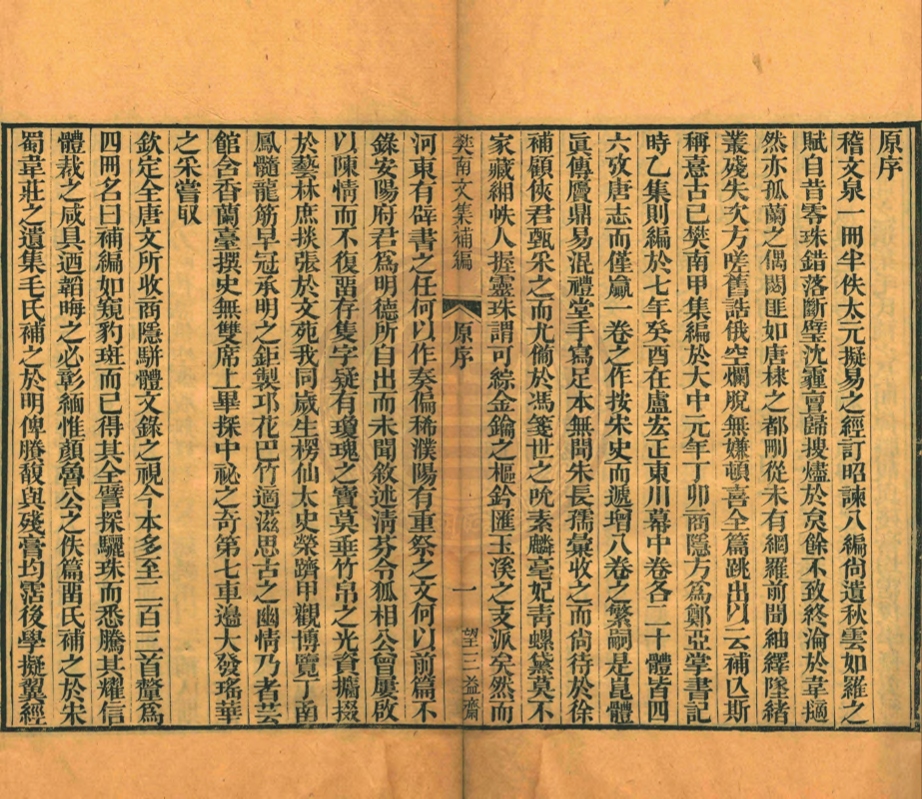 原序
稽文泉一冊半佚太元擬易之經訂昭諫八編尙遺秋雲如羅之
賦自昔零珠錯落斷璧沈薶亶歸搜爐於炱餘不致終淪於韋擿
然亦孤蘭之偶閟匪如唐棣之都刪從未有網羅前聞紬繹墜緒
叢殘失次方嗟舊誥俄空爛脫無嫌頓喜全篇跳出以云補亾斯
稱意古已樊南甲集編於大中元年丁卯商隱方爲鄭亞掌書記
時乙集則編於七年癸酉在盧安正東川幕中卷各二十體皆四
六攷唐志而僅贏一卷之作按宋史而遞增八卷之繁嗣是崑體
眞傳贗鼎易混禮堂手寫足本無聞朱長孺彙收之而尙待於徐
補顧俠君甄采之而尤倫於馮箋世之吮素麟毫妃靑螺黛莫不
家藏緗帙人握靈珠謂可綜金鑰之樞鈐匯玉溪之支派矣然而
樊南文集補編
原序
一
望三益齋
河東有辟書之任何以作奏偏稀濮陽有重祭之文何以前篇不
錄安陽府君爲明德所自出而未聞敘述淸芬令狐相公曾屢啟
以陳情而不復畱存隻字疑有瓊瑰之寶莫垂竹帛之光資攟掇
於藝林庶掞張於文苑我同歲生楞仙太史榮躋甲觀博覽丁南
鳳髓龍筋早冠承明之鉅製邛花巴竹適滋思古之幽情乃者芸
館含香蘭臺撰史無雙席上畢探中祕之奇第七車邊大發瑤華
之采嘗取
欽定全唐文所收商隱駢體文錄之視今本多至二百三首釐爲
四冊名曰補編如窺豹斑而已得其全譬探驪珠而悉騰其耀信
體裁之咸具迺韜晦之必彰緬惟顏魯公之佚篇畱氏補之於宋
蜀韋莊之遺集毛氏補之於明俾賸馥與殘膏均霑後學擬翼經